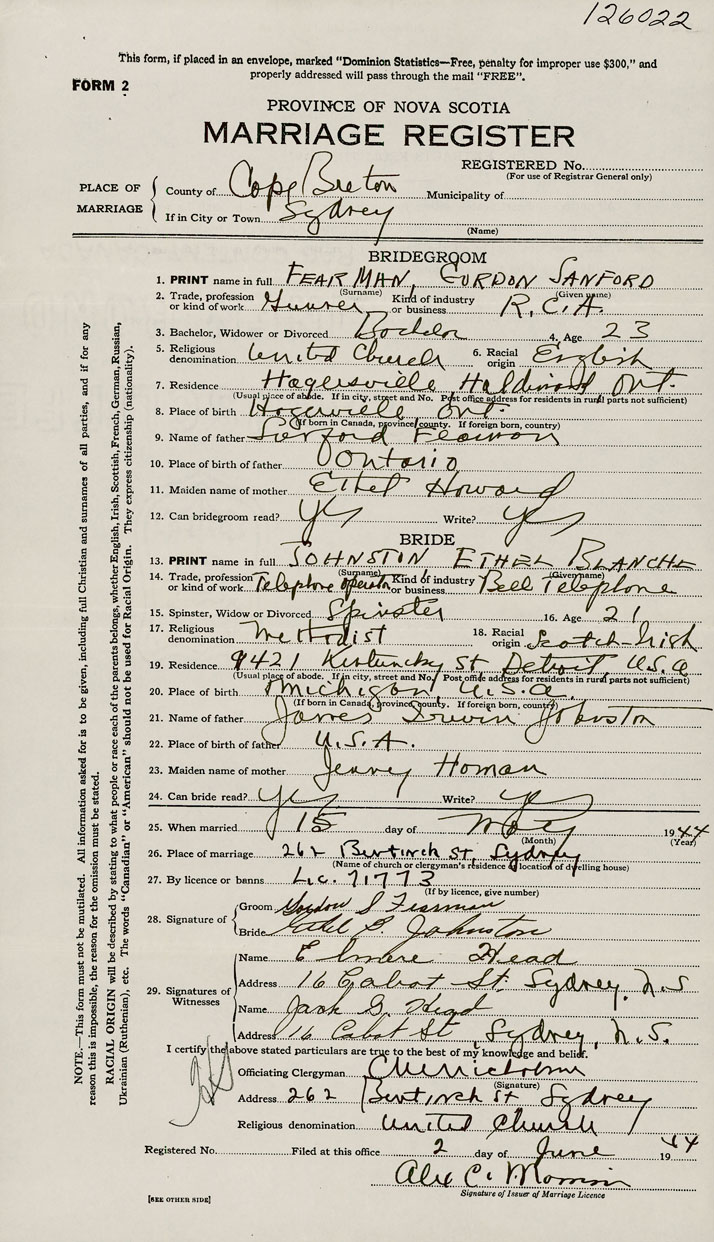 126022
This form, if placed in an envelope, marked "Dominion Statistics—Free, penalty for improper use $300," and
properly addressed will pass through the mail "FREE".
FORM 2
PROVINCE OF NOVA SCOTIA
MARRIAGE REGISTER
REGISTERED No.
(For use of Registrar General only)
PLACE OF MARRIAGE
County of Cape Breton Municipality of
If in City or Town Sydney
(Name)
BRIDEGROOM
1. PRINT name in full FEARMAN, GORDON SANFORD
(Surname) (Given name)
2. Trade, profession or kind of work Gunner Kind of industry or business R.C.A.
3. Bachelor, Widower or Divorced Bachelor 4. Age 23
5. Religious denomination United Church 6. Racial origin English
7. Residence Hagersville Haldimand, Ont.
(Usual place of abode. If in city, street and No. Post office address for residents in rural parts not sufficient)
8. Place of birth Hagersville Ont.
(If born in Canada, province, county. If foreign born, country)
9. Name of father Fearman
10. Place of birth of father Ontario
11. Maiden name of mother Ethel Howard
12. Can bridegroom read? yes Write? yes
BRIDE
13. PRINT name in full JOHNSTON, ETHEL BLANCHE
(Surname) (Given name)
14. Trade, profession or kind of work Telephone operator Kind of industry or business Bell Telephone
15. Spinster, Widow or Divorced Spinster 16. Age 21
17. Religious denomination Methodist 18. Racial origin Scotch-Irish
19. Residence 9421 Kentucky St, Detroit, U.S.A
(Usual place of abode. If in city, street and No. Post office address for residents in rural parts not sufficient)
20. Place of birth Michigan, U.S.A.
(If born in Canada, province, county. If foreign born, country)
21. Name of father James Irwin Johnston
22. Place of birth of father U.S.A.
23. Maiden name of mother Jenney Homan
24. Can bride read? yes Write? yes
25. When married 15 day of May 1944
(Month) (Year)
26. Place of marriage 262 St, Sydney
(Name of church or clergyman's residence or location of dwelling house)
27. By licence or banns Lic. 71773
(If by licence, give number)
28. Signature of
Groom Gordon S Fearman
Bride Ethel B. Johnston
29. Signatures of Witnesses
Name Elmore Head
Address 16 Cabot St. Sydney, N.S
Name Jack G. Head
Address 16 Cabot St, Sydney, N.S.
I certify the above stated particulars are true to the best of my knowledge and belief.
Officiating Clergyman
(Signature)
Address 262 St Sydney
Religious denomination United Church
Registered No. Filed at this office 2 day of June 1944
Alex C. Morrison
Signature of Issuer of Marriage Licence
[SEE OTHER SIDE]
NOTE.—This form must not be mutilated. All information asked for is to be given, including full Christian and surnames of all parties, and if for any
reason this is impossible, the reason for the omission must be stated.
RACIAL ORIGIN will be described by stating to what people or race each of the parents belongs, whether English, Irish, Scottish, French, German, Russian,
Ukrainian (Ruthenian), etc. The words "Canadian" or "American" should not be used for Racial Origin. They express citizenship (nationality).